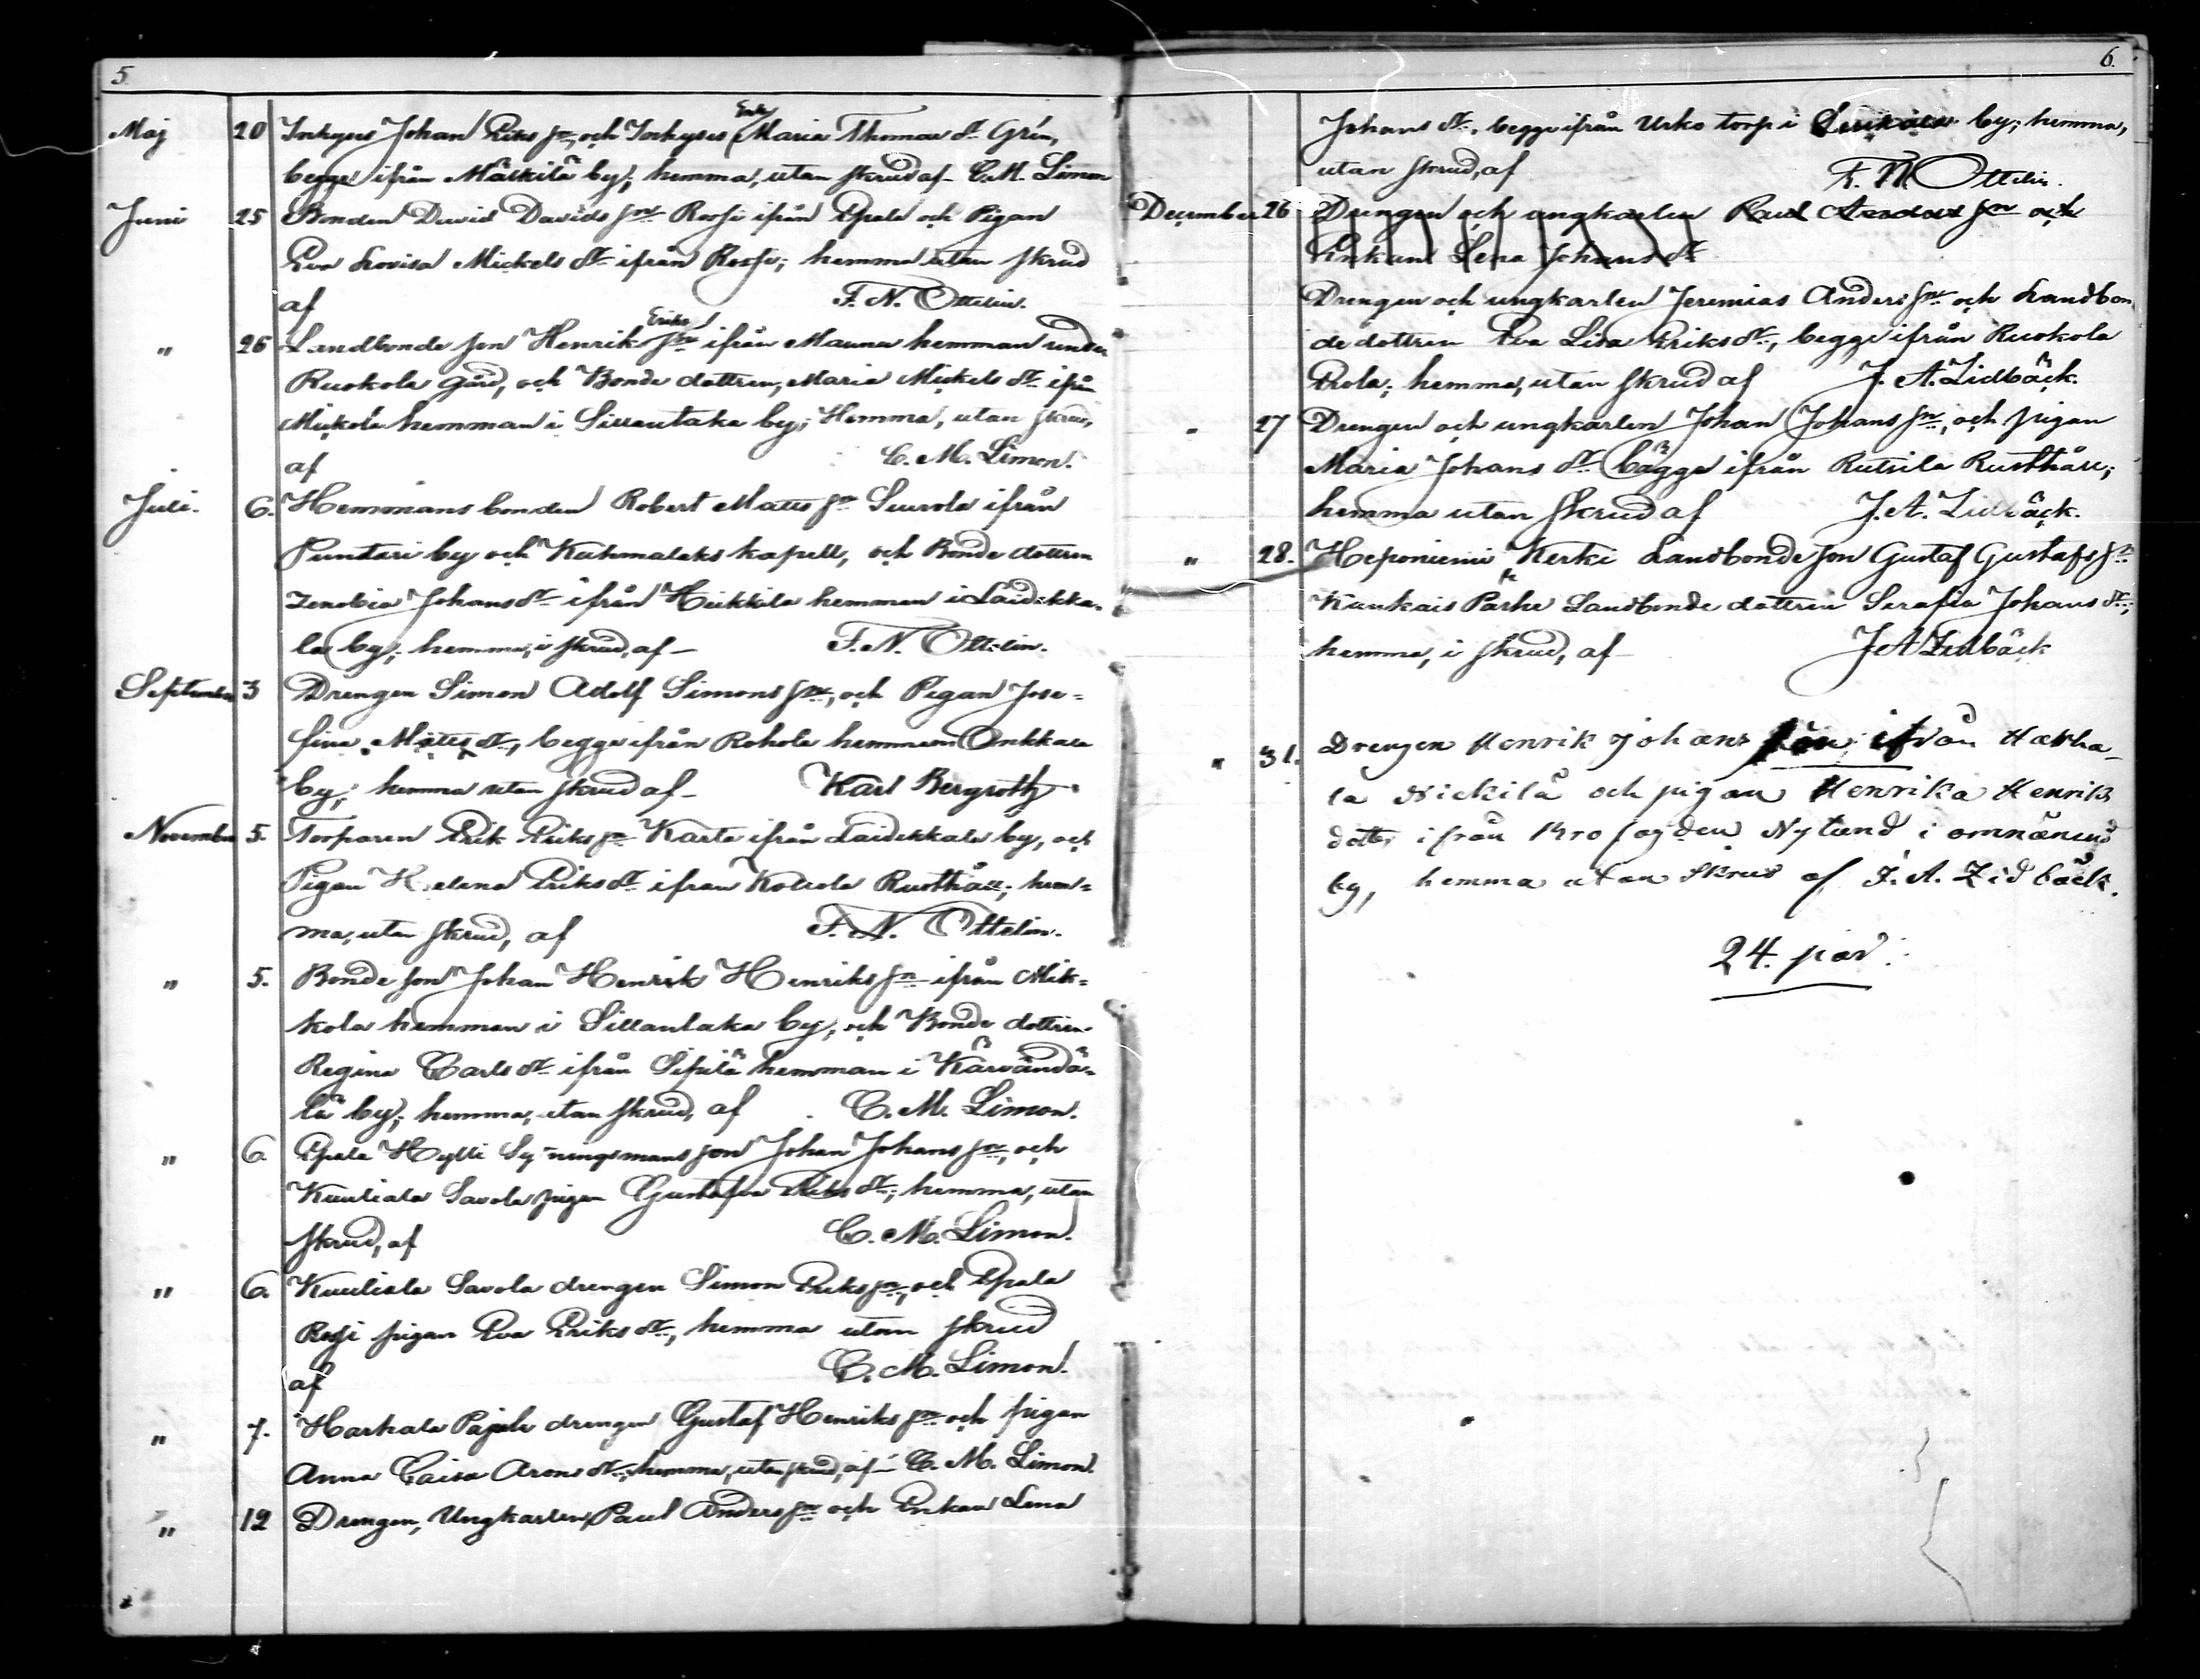 5.
Maj 20 Inhyses Johan Eriks sn, och Inhyses Enk. Maria Thomas dr Grén,
begge ifrån Mäkilä by; hemma, utan skrud af C. M. Limon
Juni 25 Bonden David Davids sn Rossi ifrån Epala och Pigan
Eva Lovisa Mickels dr ifrån Rossi; hemma utan skrud
af F. N. Ottelin.
" 26 Landbonde son Henrik Eriks sn ifrån Mauna hemman under
Ruokola gård, och Bonde dottren, Maria Mickels dr ifrån
Mickola hemman i Sillantaka by; Hemma, utan skrud,
af C. M. Limon.
Juli. 6. Hemmansbonden Robert Matts sn Suurola ifrån
Puntari by och Kuhmalaks kapell, och Bonde dottren
Zenobia Johans dr ifrån Heikkilä hemman i Laidikka-
la by; hemma, i skrud, af F. N. Ottelin.
September 3 Drengen Simon Adolf Simons sn, och Pigan Jose=
fina Matts dr, begge ifrån Rohola hemman Onkkala
by; hemma utan skrud af Karl Bergroth
November 5. Torparen Erik Eriks sn Karta ifrån Laidikkala by, och
Pigan Helena Eriks dr ifrån Kollola Rusthåll; hem=
ma, utan skrud, af F. N. Ottelin.
" 5. Bonde son Johan Henrik Henriks sn ifrån Mik=
kola hemman i Sillantaka by; och Bonde dottren
Regina Carls dr ifrån Sipilä hemman i Kärvändä=
lä by; hemma, utan skrud, af C. M. Limon.
" 6. Epala Hylli Syningsmans son Johan Johans sn, och
Kuuliala Savola pigan Gustafva Eriks dr; hemma, utan
skrud, af C. M. Limon.
" 6. Kuuliala Savola drengen Simon Eriks sn, och Epala
Rossi pigan Eva Eriks dr, hemma utan skrud
af C. M. Limon.
" 7. Harhala Pajula drengen Gustaf Henriks sn och pigan
Anna Caisa Arons dr; hemma, utan skrud, af C. M. Limon.
" 12 Drengen, Ungkarlen, Paul Anders sn och Enkan Lena
6.
Johans dr, begge ifrån Urko torp i by; hemma,
utan skrud, af F. N. Ottelin.
December 26 Drengen och ungkarlen Paul Anders sn och
Enkan Lena Johans dr
Drengen och ungkarlen Jeremias Anders sn och Landbon-
de dottren Eva Lisa Eriks dr, begge ifrån Ruokola
Erola; hemma, utan skrud af J. A. Lidbäck.
" 27 Drengen och ungkarlen Johan Johans sn, och pigan
Maria Johans dr bägge ifrån Rutsila Rusthåll;
hemma utan skrud af J. A. Lidbäck.
" 28. Heponiemi Kerki Landbonde son Gustaf Gustafs sn
Kankais Parke Landbonde dottren Serafia Johans dr;
hemma, i skrud, af J A Lidbäck
" 31. Drengen Henrik Johans son ifrån Harha-
la Nickilä och pigan Henrika Henriks
dotter ifrån Krofogden Nylund i omnämnd
by, hemma utan skrud af J. A. Lidbäck.
24. par.